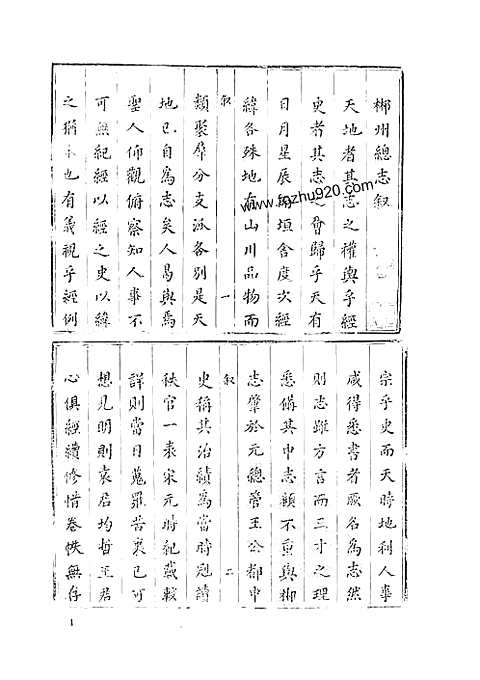 郴州總志叙
天地者其志之權輿乎經
史者其志之會歸乎天有
日月星辰垣舍度次經
緯各殊地有山川品物而
叙 一
類聚羣分支派各別是天
地已自爲志矣人曷與焉
聖人仰觀俯察知人事不
可無紀經以經之史以緯
之猶未也有義視乎經例
宗乎史而天時地利人事
咸得悉書者厥名爲志然
則志雖方言而三才之理
悉備其中志顧不重與郴
志肇於元總管王公都中
叙 二
史稱其治績爲當時冠讀
秩官一表宋元時紀載較
詳則當日蒐羅苦衷已可
想見明則袁君均哲王君
心俱經續修惜卷帙無存
1
www.fgzhu920.com